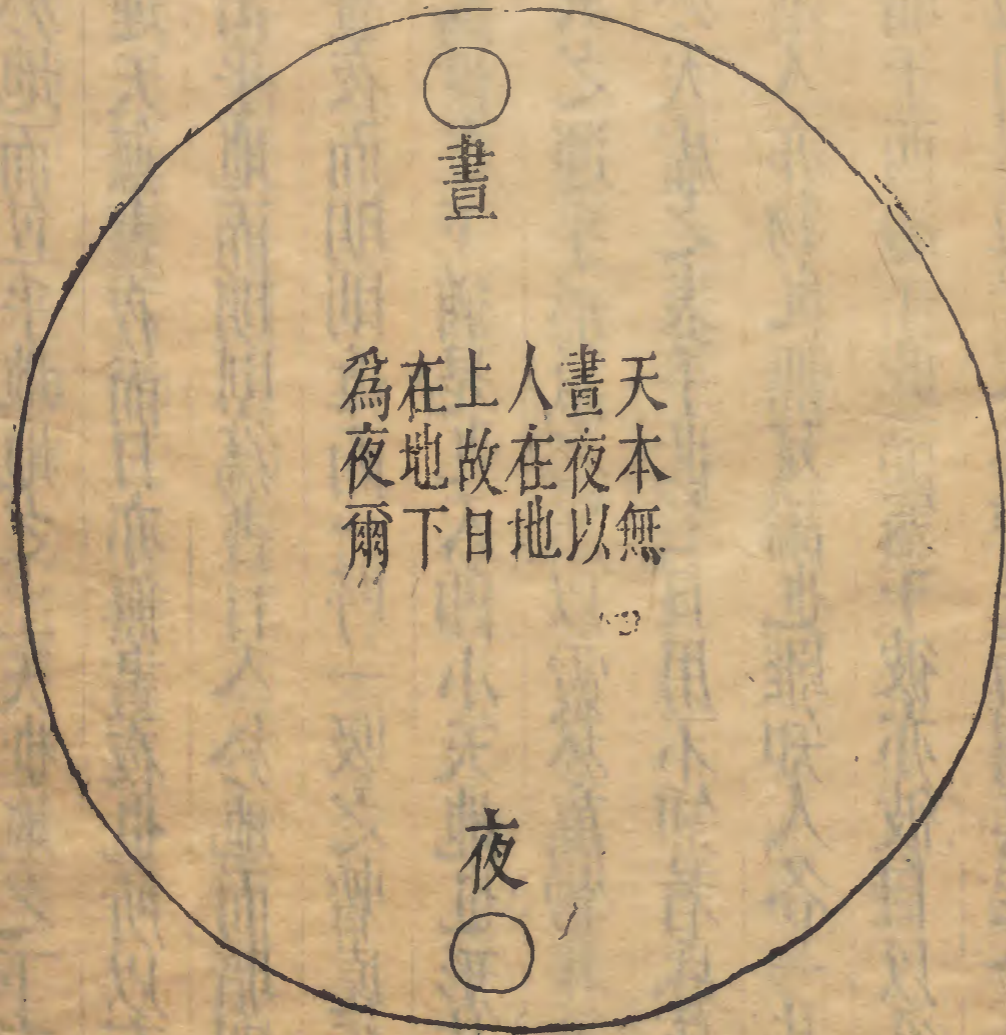 晝
天本無
晝夜以
人在地
上故日
在地下
為夜爾
夜